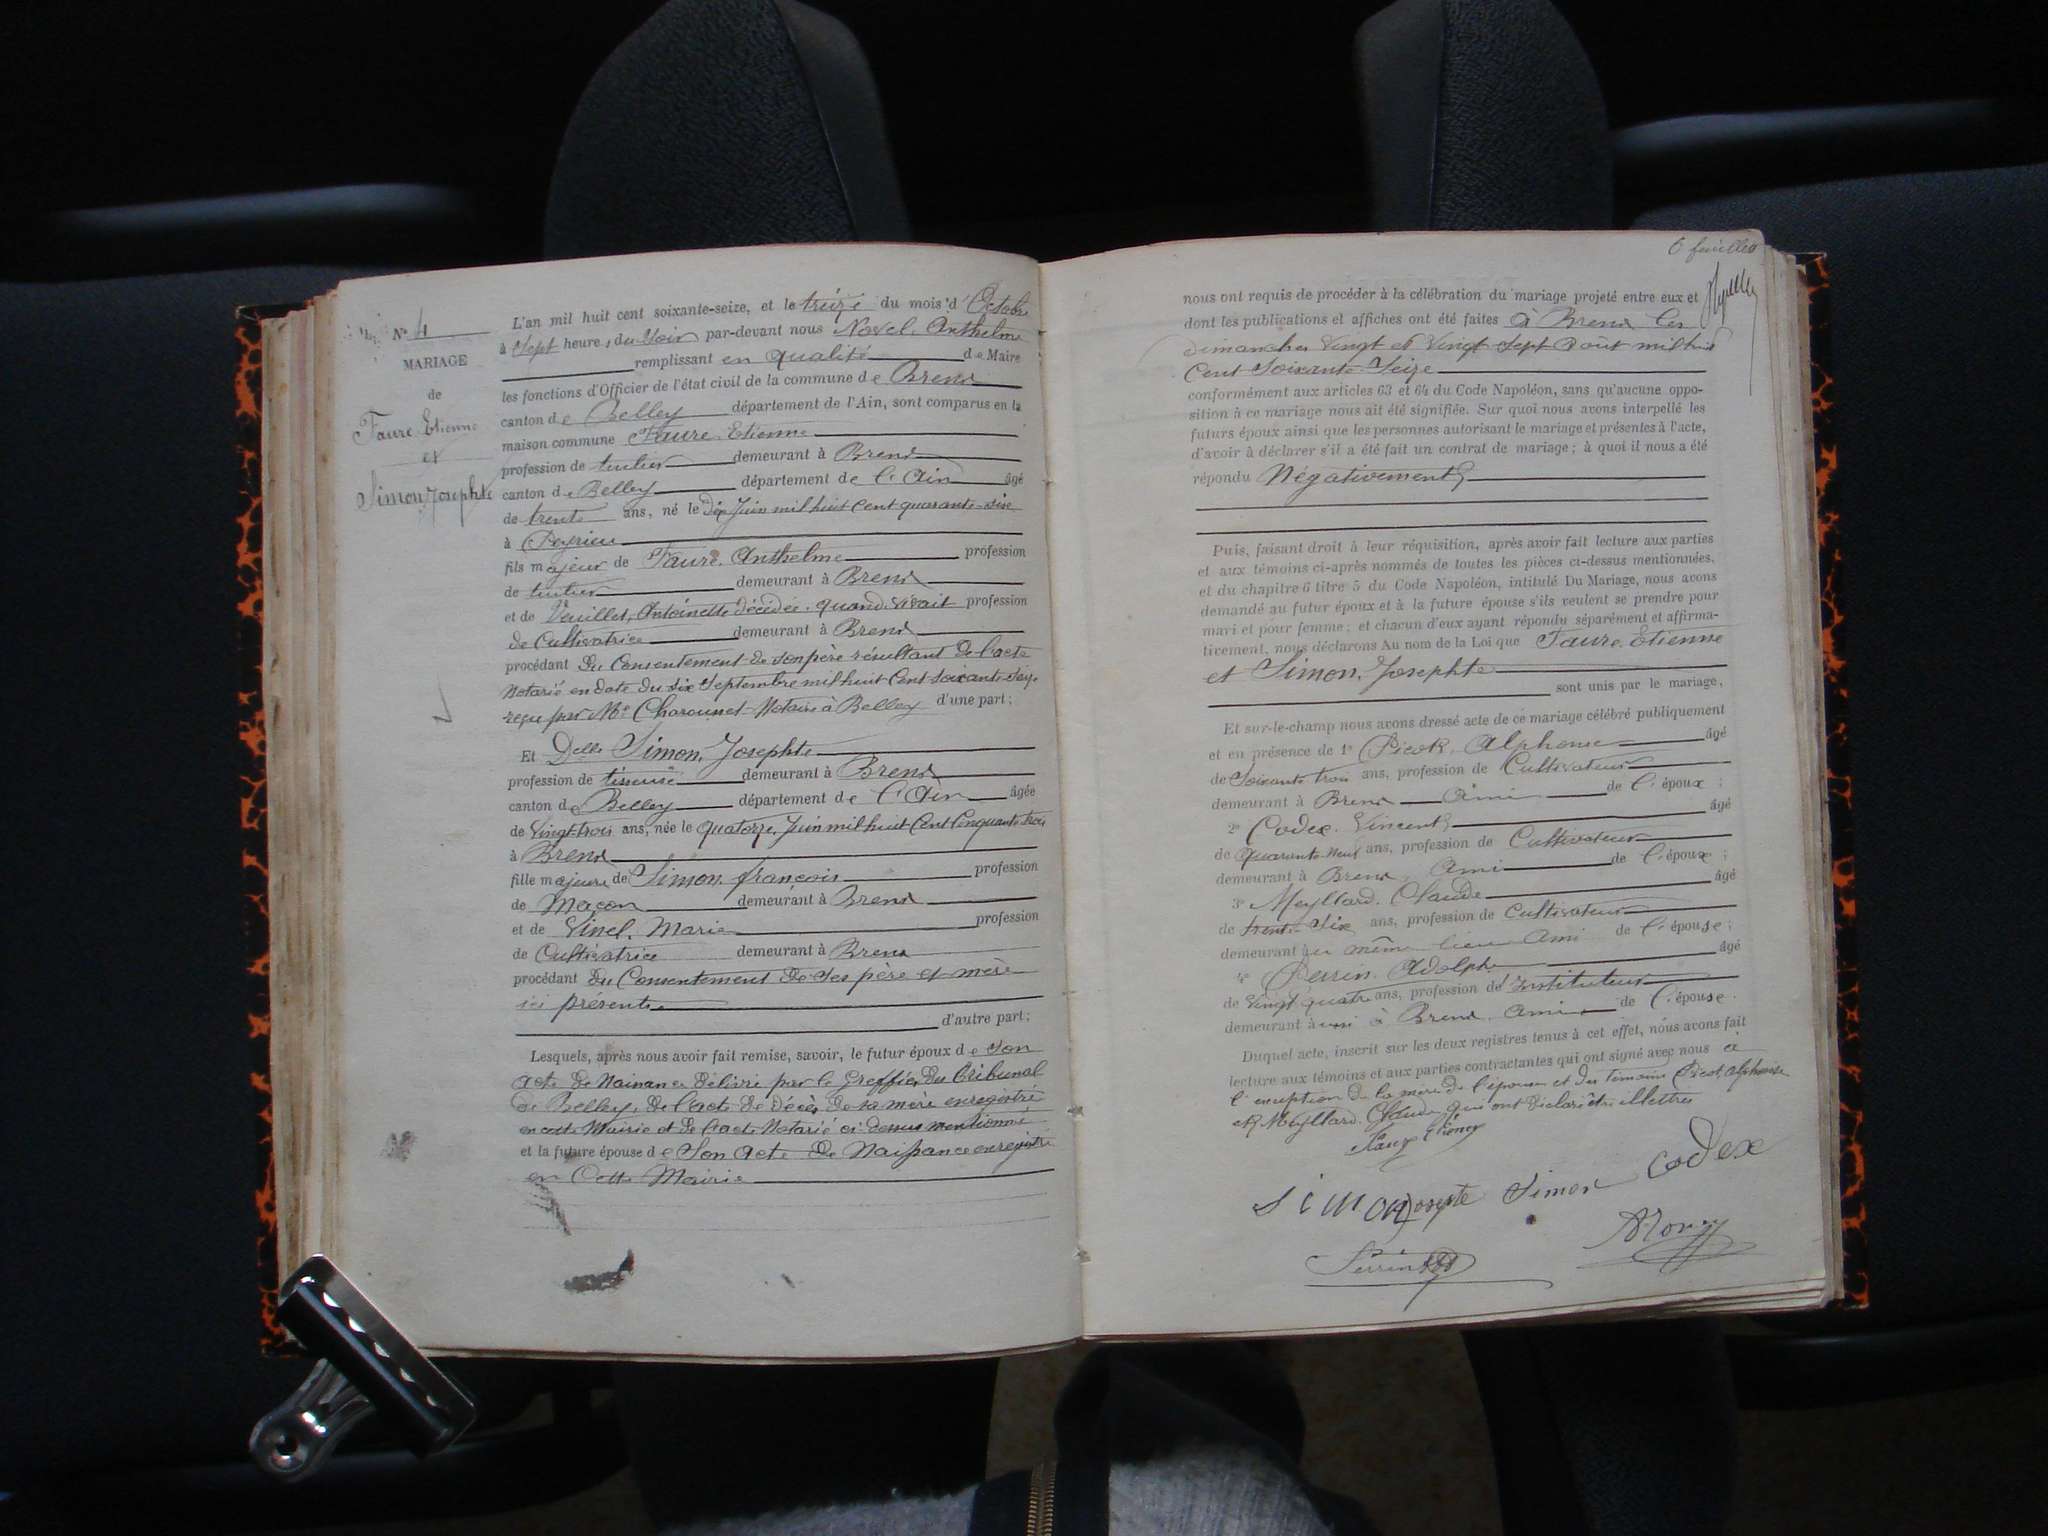 N° 4
MARIAGE
de
Faure Etienne
et
Simon Josephte
L'an mil huit cent soixante-seize, et le treize du mois d'Octobre
à Sept heures du Soir par-devant nous Novel Anthelme
remplissant en qualité de Maire
les fonctions d'Officier de l'état civil de la commune de Brens
canton de Belley département de l'Ain, sont comparus en la
maison commune Faure Etienne
profession de demeurant à Brens
canton de Belley département de l'Ain âgé
de trente ans, né le Dix Juin mil huit cent quarante-six
à Peyrieu
fils majeur de Faure Anthelme profession
de demeurant à Brens
et de Veuillet Antoinette décédée quand vivait profession
de Cultivatrice demeurant à Brens
procédant du Consentement de son père résultant de l'acte
Notarié en date du six Septembre mil huit Cent Soixante Seize
reçu par Me Notaire à Belley d'une part;
Et Delle Simon Josephte
profession de tisseuse demeurant à Brens
canton de Belley département de l'Ain âgée
de Vingt-trois ans, née le quatorze Juin mil huit Cent Cinquante trois
à Brens
fille majeure de Simon françois profession
de Maçon demeurant à Brens
et de Vinel Marie profession
de Cultivatrice demeurant à Brens
procédant du Consentement de Ses père et mère
ici présents
d'autre part;
Lesquels, après nous avoir fait remise, savoir, le futur époux de Son
acte de Naissance délivré par le Greffier du Tribunal
de Belley, de l'acte de Décès de sa mère enregistré
en cette Mairie et de l'acte Notarié ci-dessus mentionné
et la future épouse de Son acte de Naissance enregistré
en Cette Mairie
6 feuilles
nous ont requis de procéder à la célébration du mariage projeté entre eux et
dont les publications et affiches ont été faites à Brens les
dimanches vingt et vingt Sept Août mil huit
Cent Soixante Seize
conformément aux articles 63 et 64 du Code Napoléon, sans qu'aucune oppo-
sition à ce mariage nous ait été signifiée. Sur quoi nous avons interpellé les
futurs époux ainsi que les personnes autorisant le mariage et présentes à l'acte,
d'avoir à déclarer s'il a été fait un contrat de mariage; à quoi il nous a été
répondu Négativement
Puis, faisant droit à leur réquisition, après avoir fait lecture aux parties
et aux témoins ci-après nommés de toutes les pièces ci-dessus mentionnées,
et du chapitre 6 titre 5 du Code Napoléon, intitulé Du Mariage, nous avons
demandé au futur époux et à la future épouse s'ils veulent se prendre pour
mari et pour femme; et chacun d'eux ayant répondu séparément et affirma-
tivement, nous déclarons Au nom de la Loi que Faure Etienne
et Simon Josephte
sont unis par le mariage.
Et sur-le-champ nous avons dressé acte de ce mariage célébré publiquement
et en présence de 1° Picot Alphonse âgé
de Soixante trois ans, profession de Cultivateur
demeurant à Brens Ami de l'époux;
2° Codex Vincent âgé
de quarante neuf ans, profession de Cultivateur
demeurant à Brens Ami de l'époux;
3° Meyllard Claude âgé
de trente Six ans, profession de Cultivateur
demeurant au même lieu Ami de l'épouse;
4° Perrin Adolphe âgé
de Vingt quatre ans, profession de Instituteur
demeurant aussi à Brens Ami de l'épouse.
Duquel acte, inscrit sur les deux registres tenus à cet effet, nous avons fait
lecture aux témoins et aux parties contractantes qui ont signé avec nous à
l'exception de la mère de l'épouse et des témoins Picot Alphonse
et Meyllard Claude qui ont déclaré être illettrés
Faure Etiene
Simon Josepte Simon Codex
Perrin